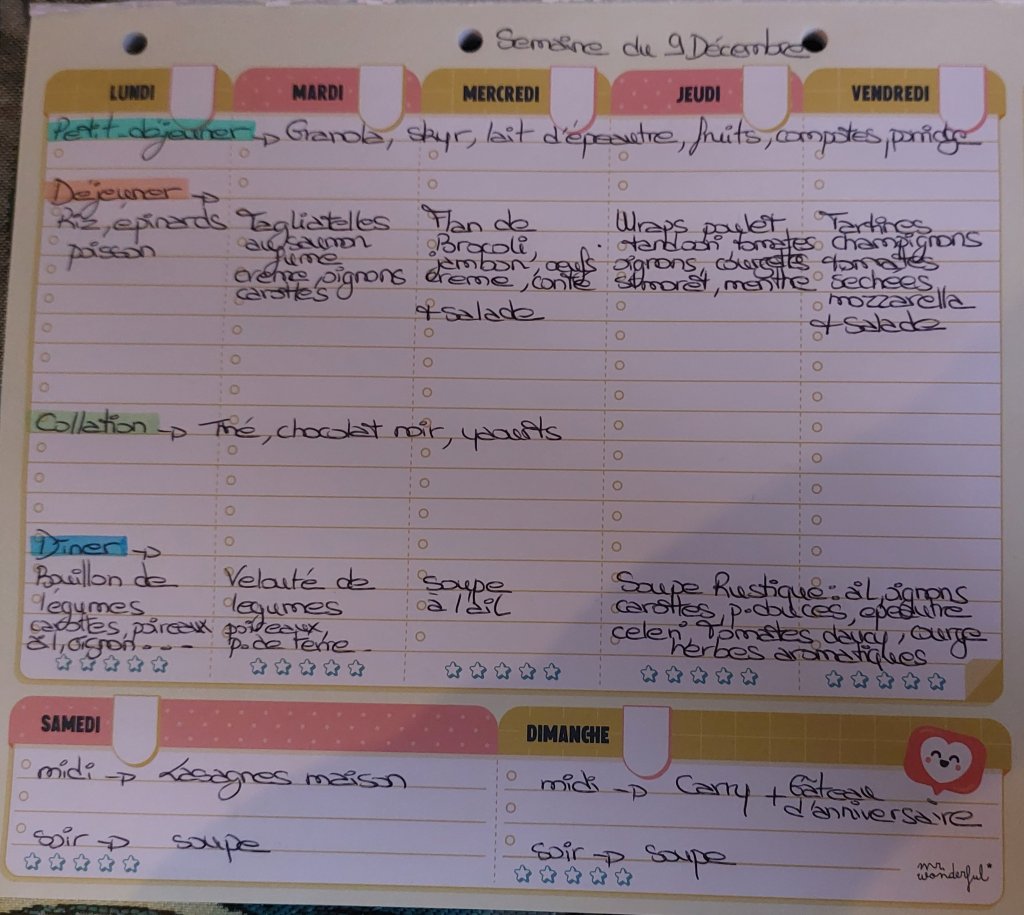 Semaine du 9 Décembre
LUNDI
MARDI
MERCREDI
JEUDI
VENDREDI
Petit-dejeuner → Granola, skyr, lait d'épeautre, fruits, compotes, porridge
Déjeuner →
Riz, épinards
poisson
Tagliatelles
au saumon
fumé
crème, oignons
carottes
Flan de
Brocoli,
jambon, oeufs
creme, conté
+ salade
Wraps poulet
tandoori tomates
oignons, courgette
st moret, menthe
Tartines
champignons
tomates
sechees
mozzarella
+ salade
Collation → Thé, chocolat noir, yaourts
Diner →
Bouillon de
légumes
carottes, poireaux
ail, oignon....
Velouté de
legumes
poireaux,
p. de terre.
Soupe
à l'ail
Soupe Rustique: ail, oignons
carottes, p. douces, epeautre
celeri, tomates, courge
herbes aromatiques
SAMEDI
midi → Lasagnes maison
soir → soupe
DIMANCHE
midi → Carry + Gâteau
d'anniversaire
soir → soupe
mr.
wonderful*